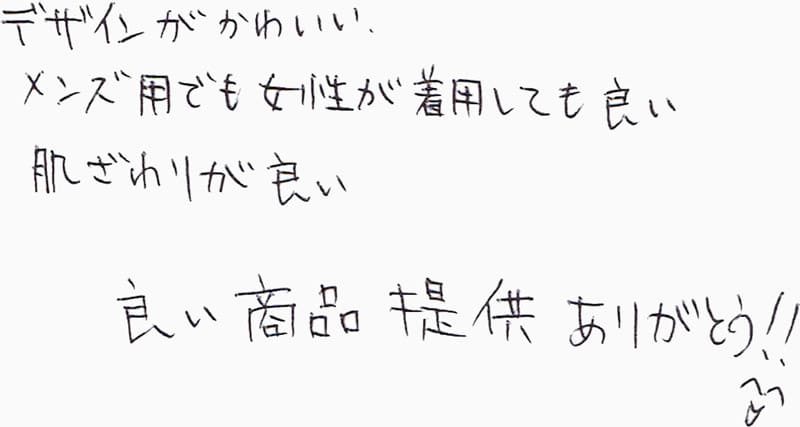 デザインがかわいい.
メンズ用でも女性が着用しても良い
肌ざわりが良い
良い商品提供ありがとう!!